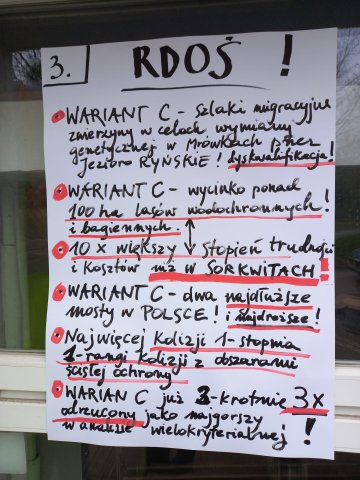 3. RDOŚ !
• WARIANT C - szlaki migracyjne
zwierzyny w celach wymiany
genetycznej w Mrówkach przez
jezioro RYŃSKIE! dyskwalifikacja!
• WARIANT C - wycinka ponad
100 ha lasów wodochronnych!
i bagiennych.
• 10 x większy stopień trudności
i kosztów niż w SORKWITACH!
• WARIANT C - dwa najdłuższe
mosty w POLSCE! i najdroższe!
• Najwięcej kolizji 1-stopnia
1-rangi kolizji z obszarami
ścisłej ochrony
• WARIAN C już 3-krotnie 3x
odrzucony jako najgorszy
w analizie wielokryterialnej!